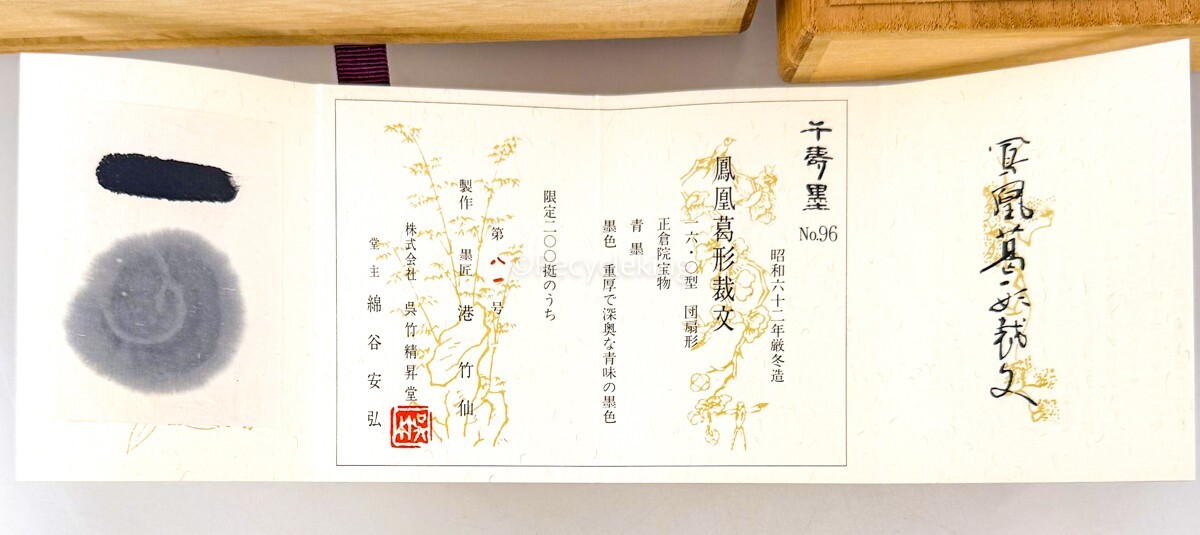 鳳凰葛形裁文
千寿墨
No.96
昭和六十二年厳冬造
鳳凰葛形裁文
一六・〇型 団扇形
正倉院宝物
青墨
墨色 重厚で深奥な青味の墨色
限定二〇〇挺のうち
第 八一 号
製作 墨匠 港竹仙
株式会社 呉竹精昇堂
堂主 綿谷安弘
©Recycleking